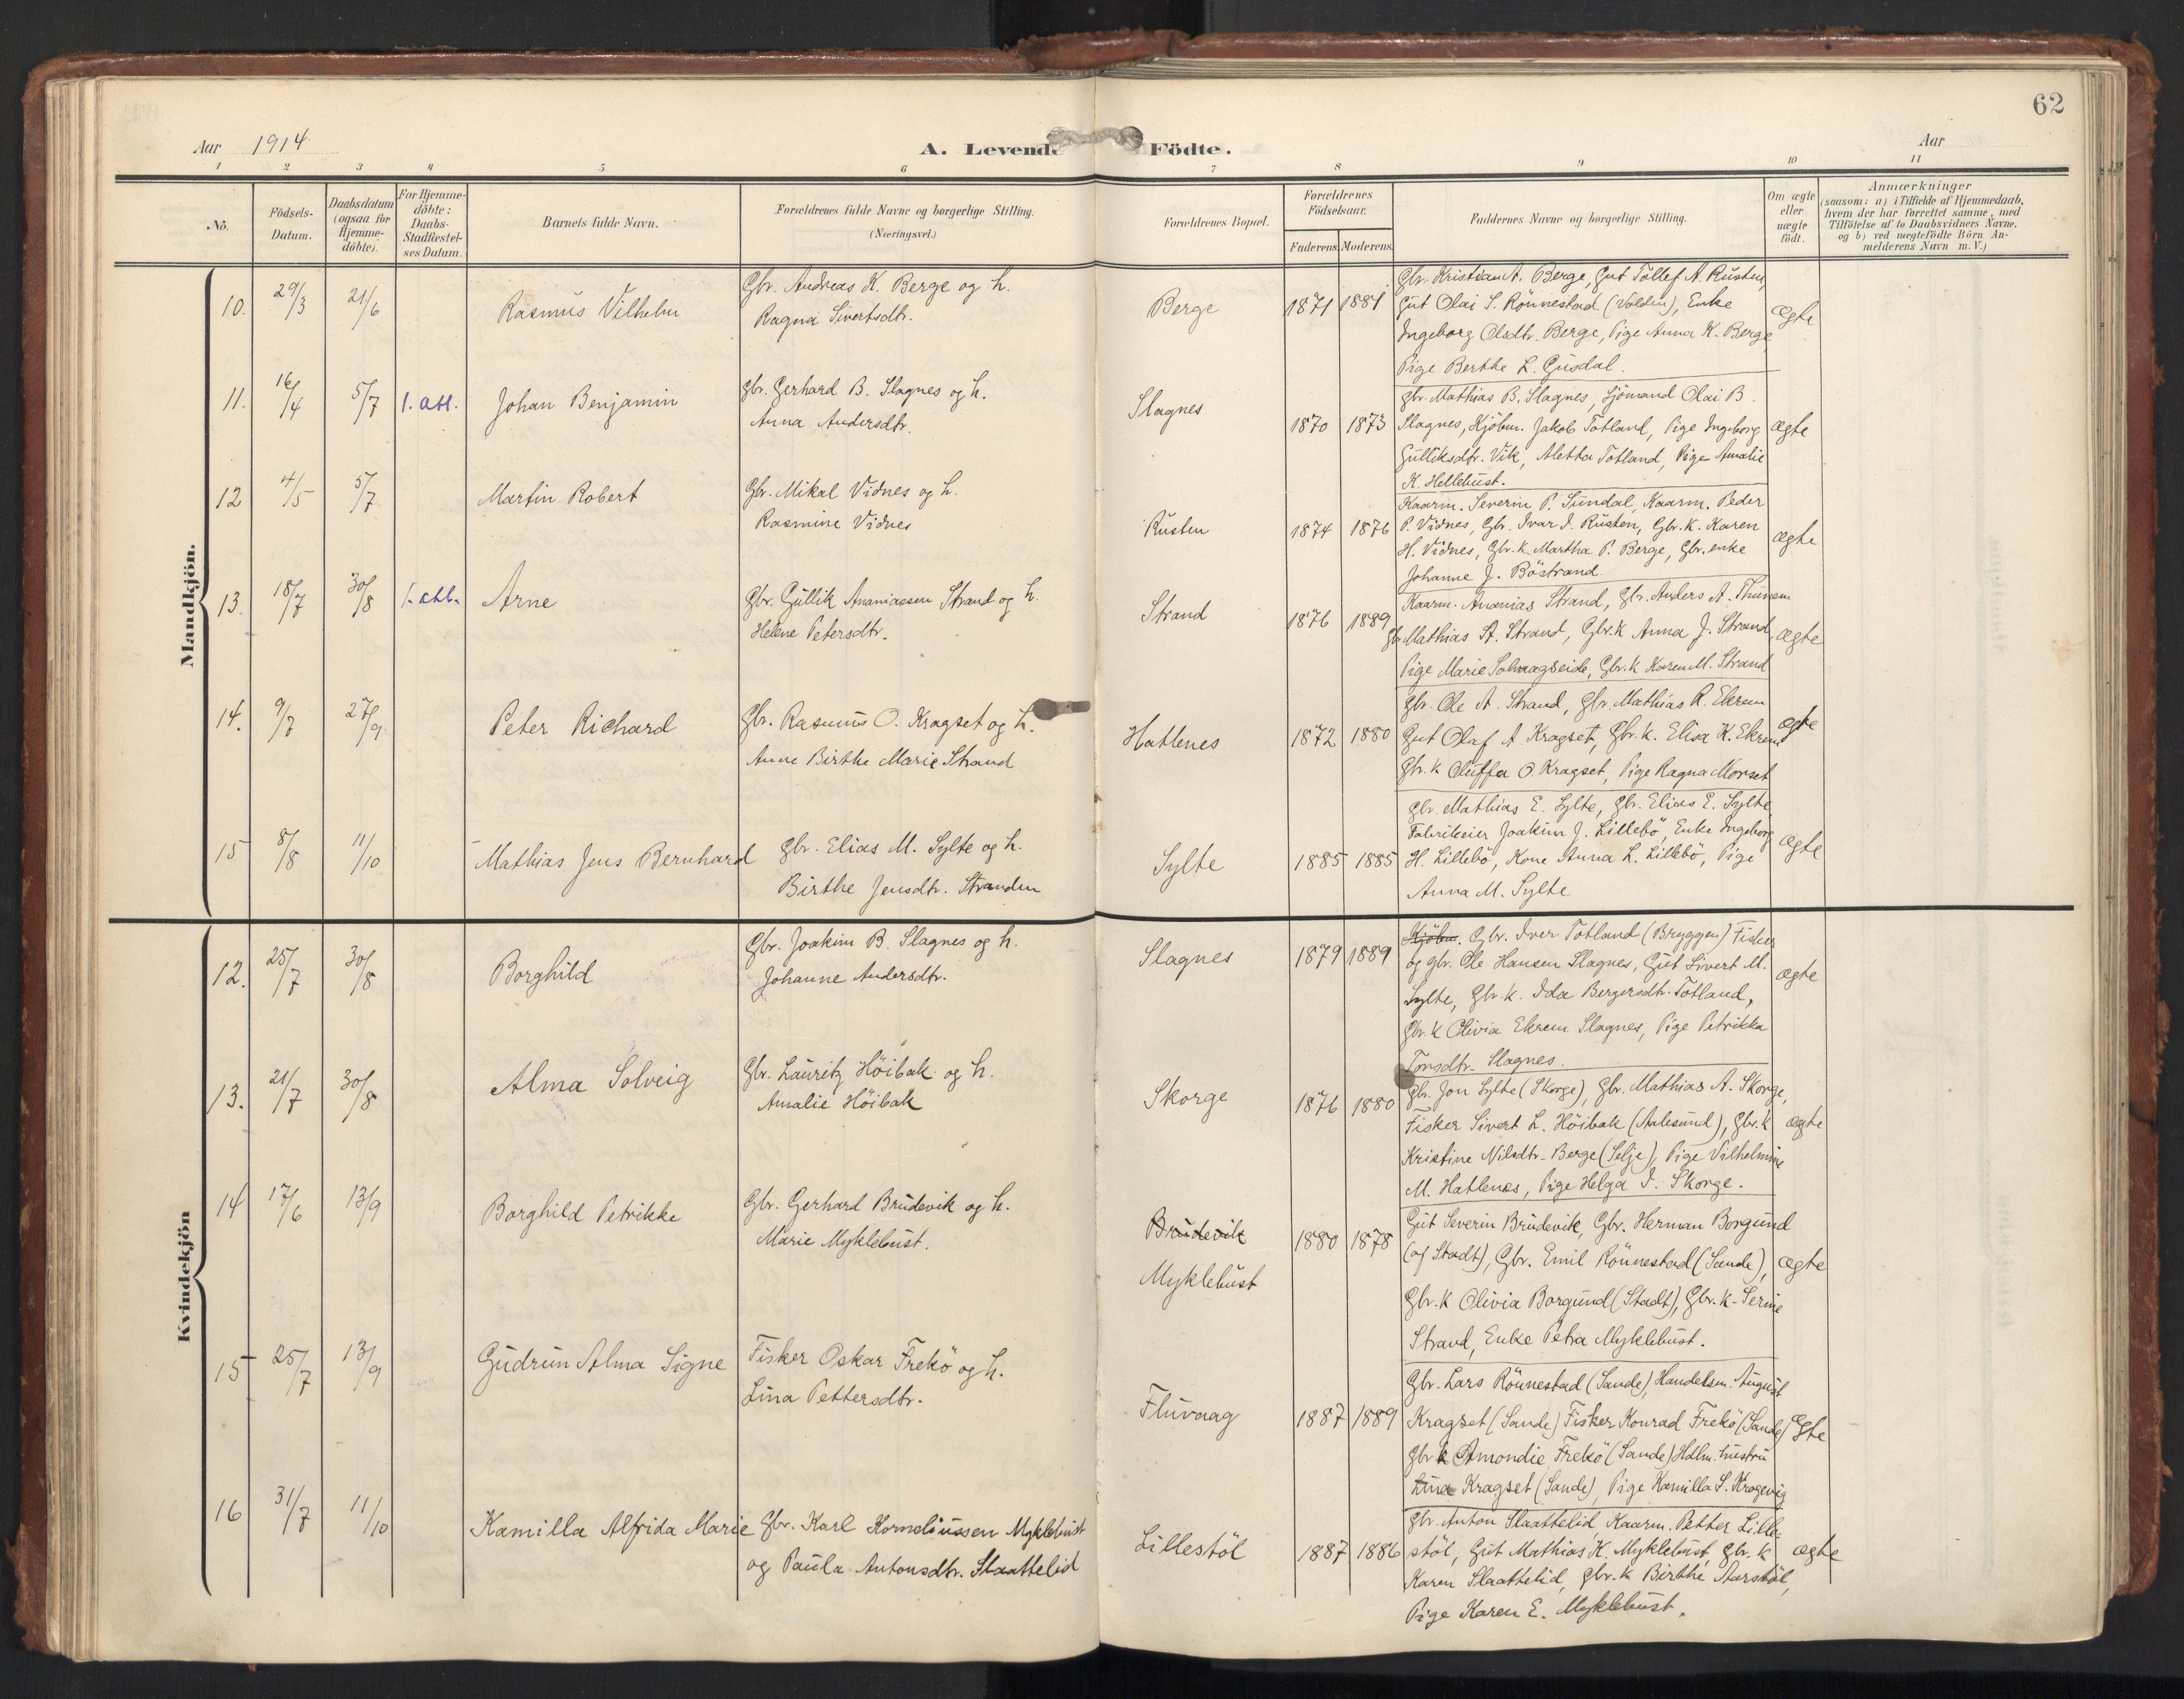 62
Aar 1914
A. Levende Födte.
Aar
1 2 3 4 5 6 7 8 9 10 11
No.
Födsels-
Datum.
Daabsdatum
(ogsaa for
Hjemme-
döbte).
For Hjemme-
döbte:
Daabs-
Stadfæstel-
ses Datum.
Barnets fulde Navn.
Forældrenes fulde Navne og borgerlige Stilling.
(Næringsvei.)
Forældrenes Bopæl.
Forældrenes
Födselsaar.
Faderens. Moderens.
Faddernes Navne og borgerlige Stilling.
Om ægte
eller
uægte
födt.
Anmærkninger
(saasom: a) i Tilfælde af Hjemmedaab,
hvem der har forrettet samme, med
Tilföielse af to Daabsvidners Navne.
og b) ved uægtefödte Börn An-
melderens Navn m. V.)
Mandkjön.
10. 29/3 21/6 Rasmus Vilhelm
Gbr. Andreas K. Berge og h.
Ragna Sivertsdtr.
Berge 1871 1881
Gbr. Kristian A. Berge, Gut Tollef A. Rusten,
Gut Olai S. Rönnestad (Volden), Enke
Ingeborg Olsdtr. Berge, Pige Anna K. Berge,
Pige Berthe L. Gusdal.
ægte
11. 16/4 5/7 Johan Benjamin
Gbr. Gerhard B. Slagnes og h.
Anna Andersdtr.
Slagnes 1870 1873
Gbr. Mathias B. Slagnes, Sjömand Olai B.
Slagnes, Kjöbm. Jakob Totland, Pige Ingeborg
Gulliksdtr. Vik, Aletta Totland, Pige Amalie
K. Hellebust.
ægte
12 4/5 5/7 Martin Robert
Gbr. Mikal Vidnes og h.
Rasmine Vidnes
Rusten 1874 1876
Kaarm. Severin P. Sundal, Kaarm. Peder
P. Vidnes, Gbr. Ivar I. Rusten, Gbr. k. Karen
H. Vidnes, Gbr. k. Martha P. Berge, Gbr. enke
Johanne J. Böstrand.
ægte
13. 18/7 30/8 Arne
Gbr. Gullik Ananiassen Strand og h.
Helene Petersdtr.
Strand 1876 1889
Kaarm. Ananias Strand, Gbr. Anders A. Thunem
Gbr. Mathias A. Strand, Gbr. k Anna J. Strand,
Pige Marie Solvaagseide, Gbr. k Karen M. Strand
ægte
14. 9/7 27/9 Peter Richard
Gbr. Rasmus O. Kragset og h.
Anne Birthe Marie Strand
Hatlenes 1872 1880
Gbr. Ole A. Strand, Gbr. Mathias R. Ekrem
Gut Olaf A. Kragset, Gbr. k. Elisa K. Ekrem
Gbr. k Oluffa O. Kragset, Pige Ragna Morset
ægte
15 8/8 11/10 Mathias Jens Bernhard
Gbr. Elias M. Sylte og h.
Birthe Jensdtr. Stranden
Sylte 1885 1885
Gbr. Mathias E. Sylte, Gbr. Elias E. Sylte,
Fabrikeier Joakim J. Lillebö, Enke Ingeborg
H. Lillebö, Kone Anna L. Lillebö, Pige
Anna M. Sylte
ægte
Kvindekjön
12. 25/7 30/8 Borghild
Gbr. Joakim B. Slagnes og h.
Johanne Andersdtr.
Slagnes 1879 1889
Kjöbm. Gbr. Iver Totland (Bryggen) Fisker
og gbr. Ole Hansen Slagnes, Gut Sivert M.
Sylte, Gbr. k. Ida Bergersdtr. Totland,
Gbr. k Olivia Ekrem Slagnes, Pige Petrikka
Tomsdtr. Slagnes.
ægte
13. 21/7 30/8 Alma Solveig
Gbr. Lauritz Höibak og h.
Amalie Höibak
Skorge 1876 1880
Gbr. Jon Sylte (Skorge), Gbr. Mathias A. Skorge,
Fisker Sivert L. Höibak (Aalesund), Gbr. k
Kristine Nilsdtr. Berge (Selje), Pige Vilhelmine
M. Hatlenes, Pige Helga I. Skorge.
ægte
14 17/6 13/9 Borghild Petrikke
Gbr. Gerhard Brudevik og h.
Marie Myklebust.
Brudevik
Myklebust 1880 1878
Gut Severin Brudevik, Gbr. Herman Borgund
(af Stadt), Gbr. Emil Rönnestad (Sande),
Gbr. k Olivia Borgund (Stadt), Gbr. k. Serine
Strand, Enke Petra Myklebust.
ægte
15 25/7 13/9 Gudrun Alma Signe
Fisker Oskar Frekö og h.
Lina Pettersdtr.
Fluvaag 1887 1889
Gbr. Lars Rönnestad (Sande), Handelsm. August
Kragset (Sande) Fisker Konrad Frekö (Sande)
Gbr k Amondie Frekö (Sande) Hdlm. hustru
Lina Kragset (Sande), Pige Kamilla S. Kragevig
Ægte
16 31/7 11/10 Kamilla Alfrida Marie
Gbr. Karl Korneliussen Myklebust
og Paula Antonsdtr. Slaattelid
Lillestöl 1887 1886
Gbr. Anton Slaattelid, Kaarm. Petter Lille-
stöl, Gut Mathias K. Myklebust, Gbr. k
Karen Slaattelid, Gbr. k Birthe Aarstöl,
Pige Karen E. Myklebust.
ægte